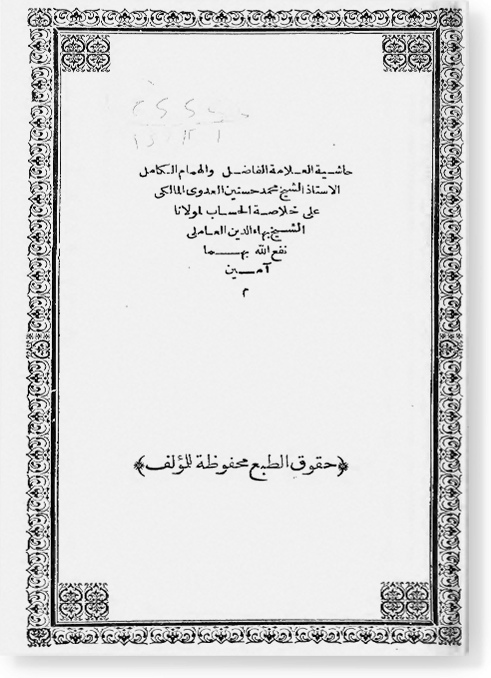 حاشية العلامة الفاضل والهمام الكامل
الاستاذ الشيخ محمد حسنين العدوى المالكى
على خلاصة الحساب لمولانا
الشيخ بهاء الدين العاملى
نفع الله بهما
آمين
م
﴿حقوق الطبع محفوظة للمؤلف﴾